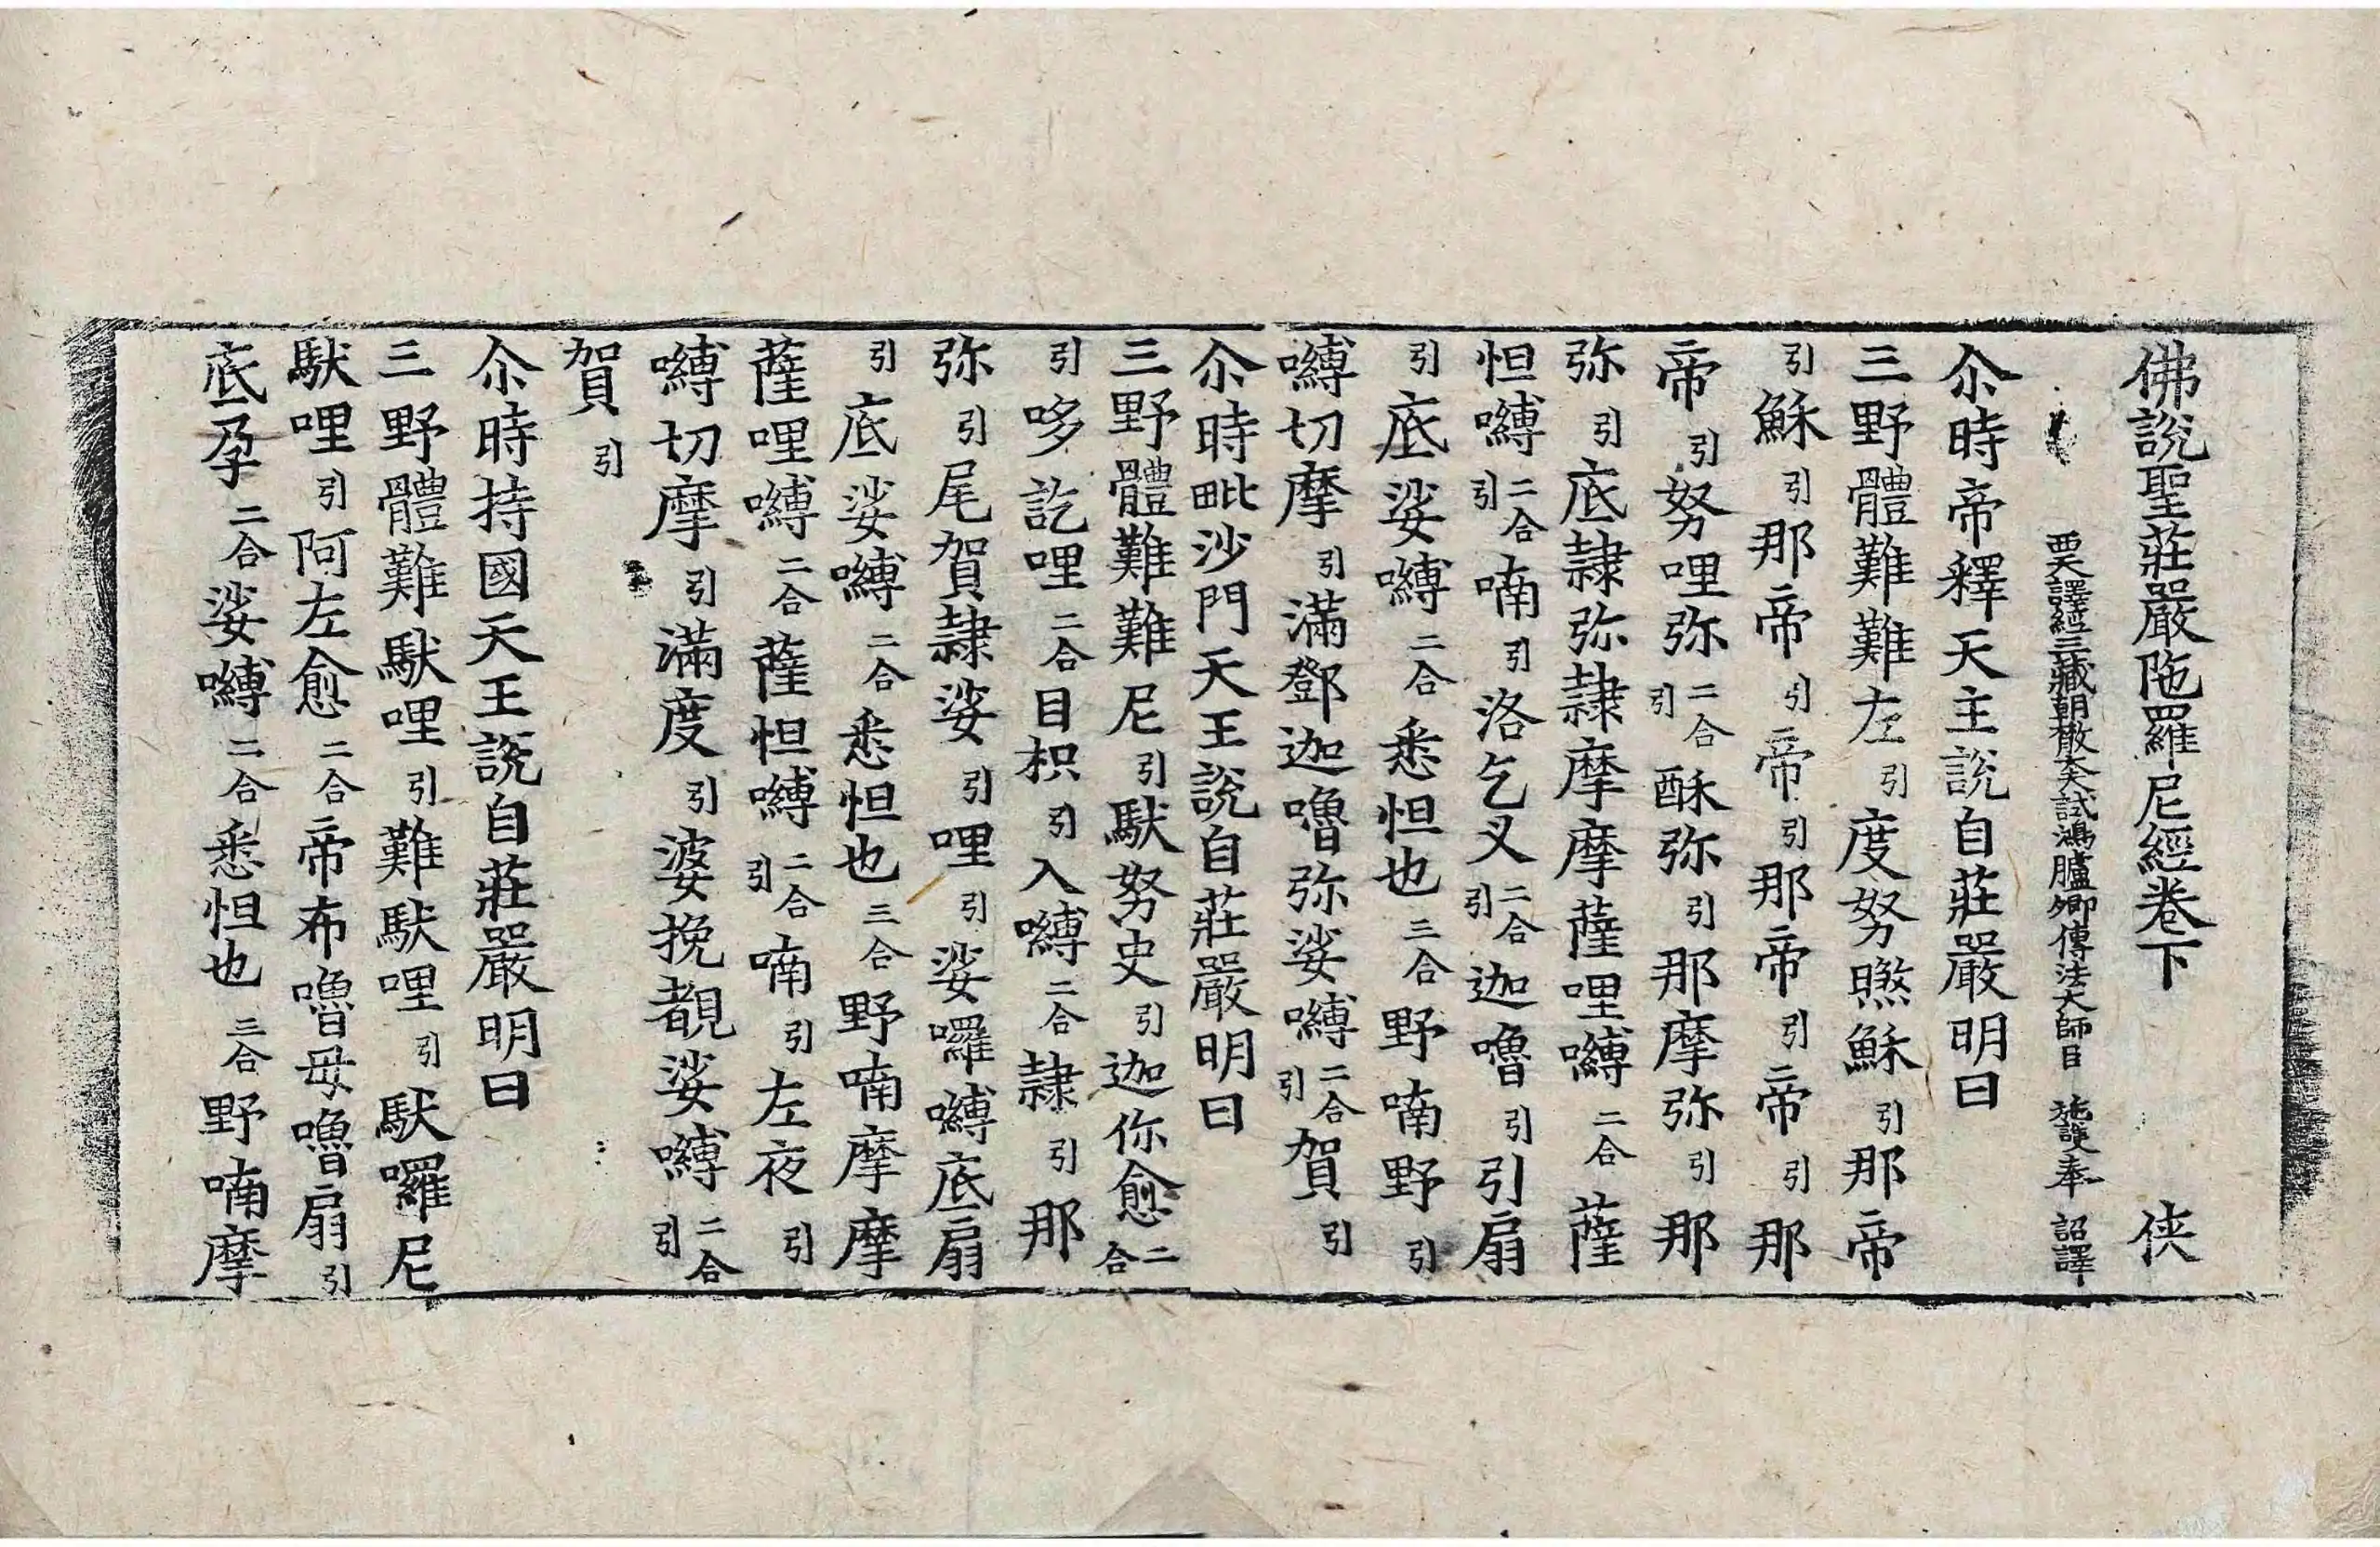 佛說聖莊嚴陁羅尼經卷下 侠
西天譯經三藏朝散大夫試鴻臚卿傳法大師臣 施護奉 詔譯
尒時帝釋天主說自莊嚴明曰
三野體難難左引度努㬠穌引那帝
引穌引那帝引帝引那帝引帝引那
帝引努哩弥二合引酥弥引那摩弥引那
弥引底隷弥隷摩摩薩哩嚩二合薩
怛嚩二合引喃引洛乞叉二合引迦嚕引引扇
引底娑嚩二合悉怛也三合野喃野引
嚩切摩引滿鄧迦嚕弥娑嚩二合引賀引
尒時毗沙門天王說自莊嚴明曰
三野體難難尼引馱努史引迦你愈二合
引哆訖哩二合目枳引入嚩二合隷引那
弥引尾賀隷娑引哩引娑囉嚩底扇
引底娑嚩二合悉怛也三合野喃摩摩
薩哩嚩二合薩怛嚩二合引喃引左夜引
嚩切摩引滿度引婆挽覩娑嚩二合引
賀引
尒時持國天王說自莊嚴明曰
三野體難馱哩引難馱哩引馱囉尼
馱哩引阿左愈二合帝布嚕母嚕扇引
底孕二合娑嚩二合悉怛也三合野喃摩